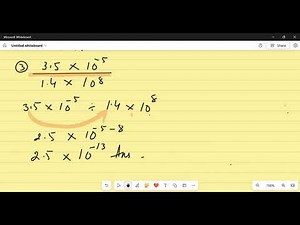 Microsoft Whiteboard
Untitled whiteboard
③ 3.5 × 10⁻⁵
1.4 × 10⁸
3.5 × 10⁻⁵ ÷ 1.4 × 10⁸
2.5 × 10⁻⁵⁻⁸
2.5 × 10⁻¹³ Ans.